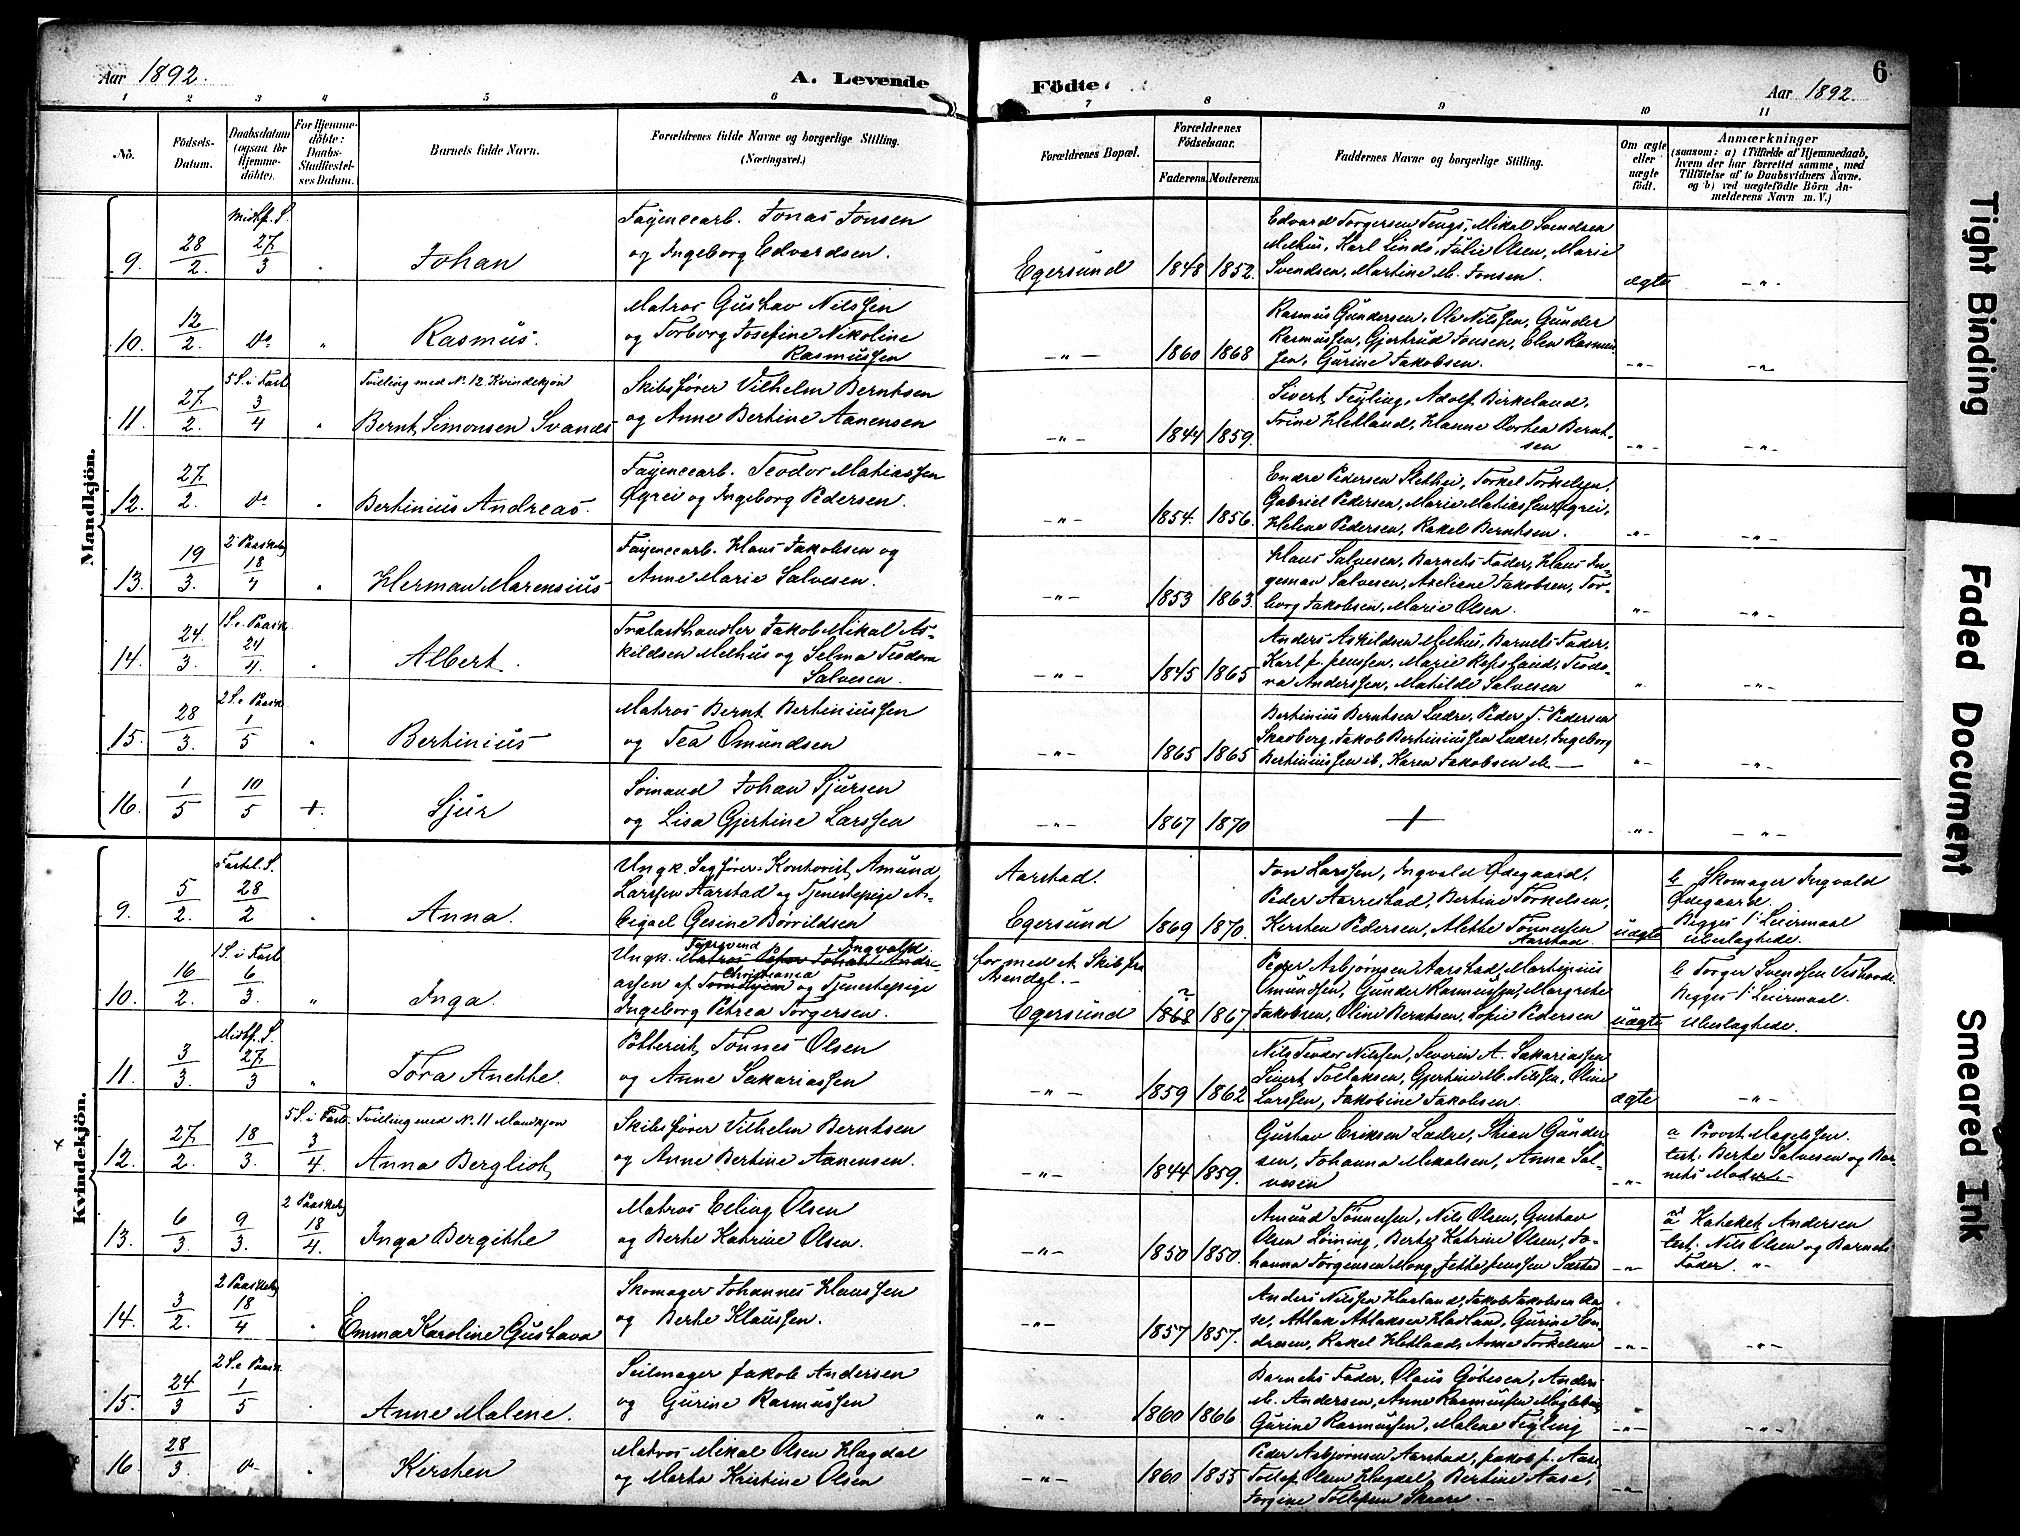 Aar 1892.
A. Levende
Födte
6
Aar 1892.
1 2 3 4 5 6 7 8 9 10 11
No.
Födsels-
Datum.
Daabsdatum
(ogsaa for
Hjemme-
döbte).
For Hjemme-
döbte:
Daabs-
Stadfæstel-
ses Datum.
Barnets fulde Navn.
Forældrenes fulde Navne og borgerlige Stilling.
(Næringsvei.)
Forældrenes Bopæl.
Forældrenes
Födselsaar.
Faderens. Moderens.
Faddernes Navne og borgerlige Stilling.
Om ægte
eller
uægte
födt.
Anmærkninger
(saasom: a) i Tilfælde af Hjemmedaab,
hvem der har forrettet samme, med
Tilföielse af to Daabsvidners Navne.
og b) ved uægtefödte Börn An-
melderens Navn m. V.)
Mandkjön.
9.
28/2.
Midtf. S.
27/3
Johan
Fayencearb. Jonas Jonsen
og Ingeborg Edvardsen.
Egersund
1848 1852.
Edvard Torgersen Tengs, Mikal Svendsen
Melhus, Karl Linds, Julie Olsen, Marie
Svendsen, Martine M. Jonsen.
ægte
-"-
10.
12/2.
do
"
Rasmus.
Matros Gustav Nilssen
og Torborg Josefine Nikoline
Rasmussen
-"-
1860 1868
Rasmus Gundersen, Ole Nilssen, Gunder
Rasmussen, Gjertrud Jonsen, Elen Rasmus-
sen, Gurine Jakobsen.
-"-
-"-
11.
27/2.
5 S. i Fast.
3/4
Tvilling med No. 12 Kvindekjön
Bernt Simonsen Svands
Skibsfører Vilhelm Berntsen
og Anne Bertine Aanensen
-"-
1844 1859.
Sivert Feyling, Adolf Birkeland,
Trine Hetland, Hanne Dorthea Bernt-
sen
-"-
-"-
12.
27/2.
do
Bertinius Andreas.
Fayencearb. Teodor Mathiassen
Øgrei og Ingeborg Pedersen.
-"-
1854. 1856.
Endre Pedersen Slettei, Torkel Torkelsen,
Gabriel Pedersen, Marie Mathiassen Øgrei,
Helene Pedersen, Rakel Berntsen.
-"-
-"-
13.
19/3.
2 Paaskedg
18/4
Herman Marensius
Fayencearb. Hans Jakobsen og
Anne Marie Salvesen.
-"-
1853 1863.
Hans Salvesen, Barnets Fader, Hans In-
gesmar Salvesen, Axeliane Jakobsen, Tor-
borg Jakobsen, Marie Olsen.
"-
-"-
14.
24/3.
1 S. e. Paask.
24/4.
Albert.
Trælasthandler Jakob Mikal As-
kildsen Melhus og Selma Teodora
Salvesen.
-"-
1845 1865
Anders Askildsen Melhus, Barnets Fader,
Karl J. Jenssen, Marie Refsland, Teodo-
ra Anderssen, Mathilde Salvesen
"
-"-
15.
28/3.
2 S. e. Paask.
1/5
"
Bertinius
Matros Bernt Bertiniussen
og Tea Omundsen
-"-
1865 1865
Bertinius Berntsen Lædre, Peder T. Pedersen
Skadberg, Jakob Bertiniussen Lædre, Ingeborg
Bertiniussen ib, Karen Jakobsen ib.
"-
-"-
16.
1/5
10/5
+.
Sjur
Sömand Johan Sjursen
og Lisa Gjertine Larssen
-"-
1867 1870
+
-"-
-"-
Kvindekjön.
9.
5/2.
Fastel. S.
28/2
"
Anna.
Ungk. Sagfører-Kontorist Amund
Larssen Aarstad og Tjenestepige A-
bigael Gesine Børrildsen
Aarstad.
Egersund
1869 1870.
Jon Larssen, Ingvald Ødegaard,
Peder Aarrestad, Bertine Torkelsen,
Kersten Pedersen, Alethe Tønnessen
Aarstad.
uægte
b Skomager Ingvald
Ødegaard.
Begges 1e Leiermaal
Uberlagthede.
10.
16/2.
1 S. i Fast
6/3.
"
Inga.
Fyrsvend Ingvald
Ungk. Matros Peter Johan Andre-
Christiania
assen af Trondhjem og Tjenestepige
Ingeborg Petrea Torgersen.
for med et Skib fra
Arendal.
Egersund
1868 1867.
Peder Asbjørnsen Aarstad, Martinius
Omundsen, Gunder Rasmussen, Margrethe
Jakobsen, Oline Berntsen, Sofie Pedersen
uægte
b Torger Svendsen
Begges 1e Leiermaal.
Uberlagthede.
11.
3/3.
Midtf. S.
27/3
"
Tora Anethe.
Pottersvt. Tönnes Olsen
og Anne Sakariassen
-"-
1859 1862
Nils Teodor Nilssen, Severin A. Sakariassen
Sivert Tollaksen, Gjertine M. Nilssen, Oline
Larssen, Jakobine Jakobsen.
ægte
-"-
x
12.
27/2.
18/3.
5 S. i Fast.
3/4.
Tvilling med No. 11 Mandkjön
Anna Bergliot.
Skibsfører Vilhelm Berntsen
og Anne Bertine Aanensen.
-"-
1844 1859.
Gustav Eriksen Lædre, Stian Gunder-
sen, Johanna Mikalsen, Anna Sal-
vesen
-"-
a Provst Magelssen.
test. Berte Salvesen og Bar-
nets Moder.
13.
6/3.
9/3.
2 Paaskedg
18/4.
Inga Bergithe
Matros Elling Olsen
og Berte Katrine Olsen.
-"-
1850 1850.
Amund Tönnessen, Nils Olsen, Gustav
Olsen Löining, Berte Katrine Olsen, Jo-
hanna Jörgensen Mong, Jette Jenssen Sæsted
-"-
a Kateket Andersen
test. Nils Olsen og Barnets
Fader. "-
14.
3/2.
2 Paaskedg
18/4
"
Emma Karoline Gustava
Skomager Johannes Hanssen
og Berte Klaussen.
-"-
1857 1857.
Anders Nilssen Hadland, Jakob Jakobsen Aa-
se, Atlak Atlaksen Hadland, Gurine En-
dresen, Rakel Hetland, Anne Torkelsen
-"-
-"-
15.
24/3
2 S. e. Paask.
1/5
Anne Malene.
Seilmager Jakob Andersen
og Gurine Rasmussen
"
1860 1866
Barnets Fader, Olaus Göbesen, Anders
M. Andersen, Anne Rasmussen
Gurine Rasmussen, Malene Feyling
-"-
-"-
16.
28/3.
do
"
Kirsten
Matros Mikal Olsen Hagdal
og Marta Kristine Olsen
-"-
1860 1855
Peder Asbjørnsen Aarstad, Jakob J. Aase,
Tollef Olsen Hagdal, Bertine Aase,
Jorgine Tollefsen Skaare.
-"-
Tight Binding
Faded Document
Smeared Ink